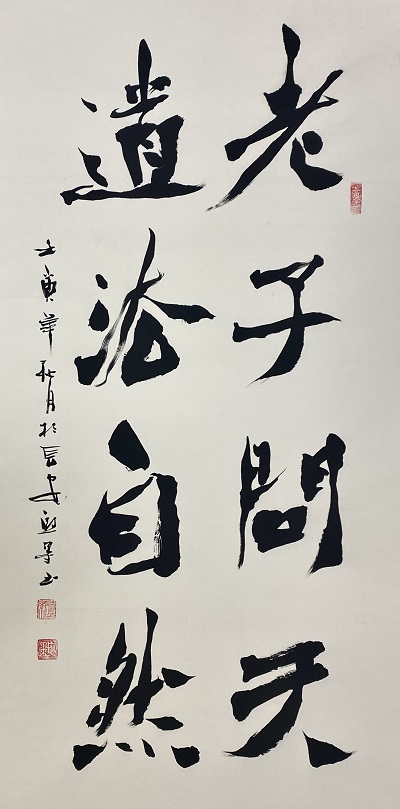 老子問天
道法自然
壬寅年秋月於長安